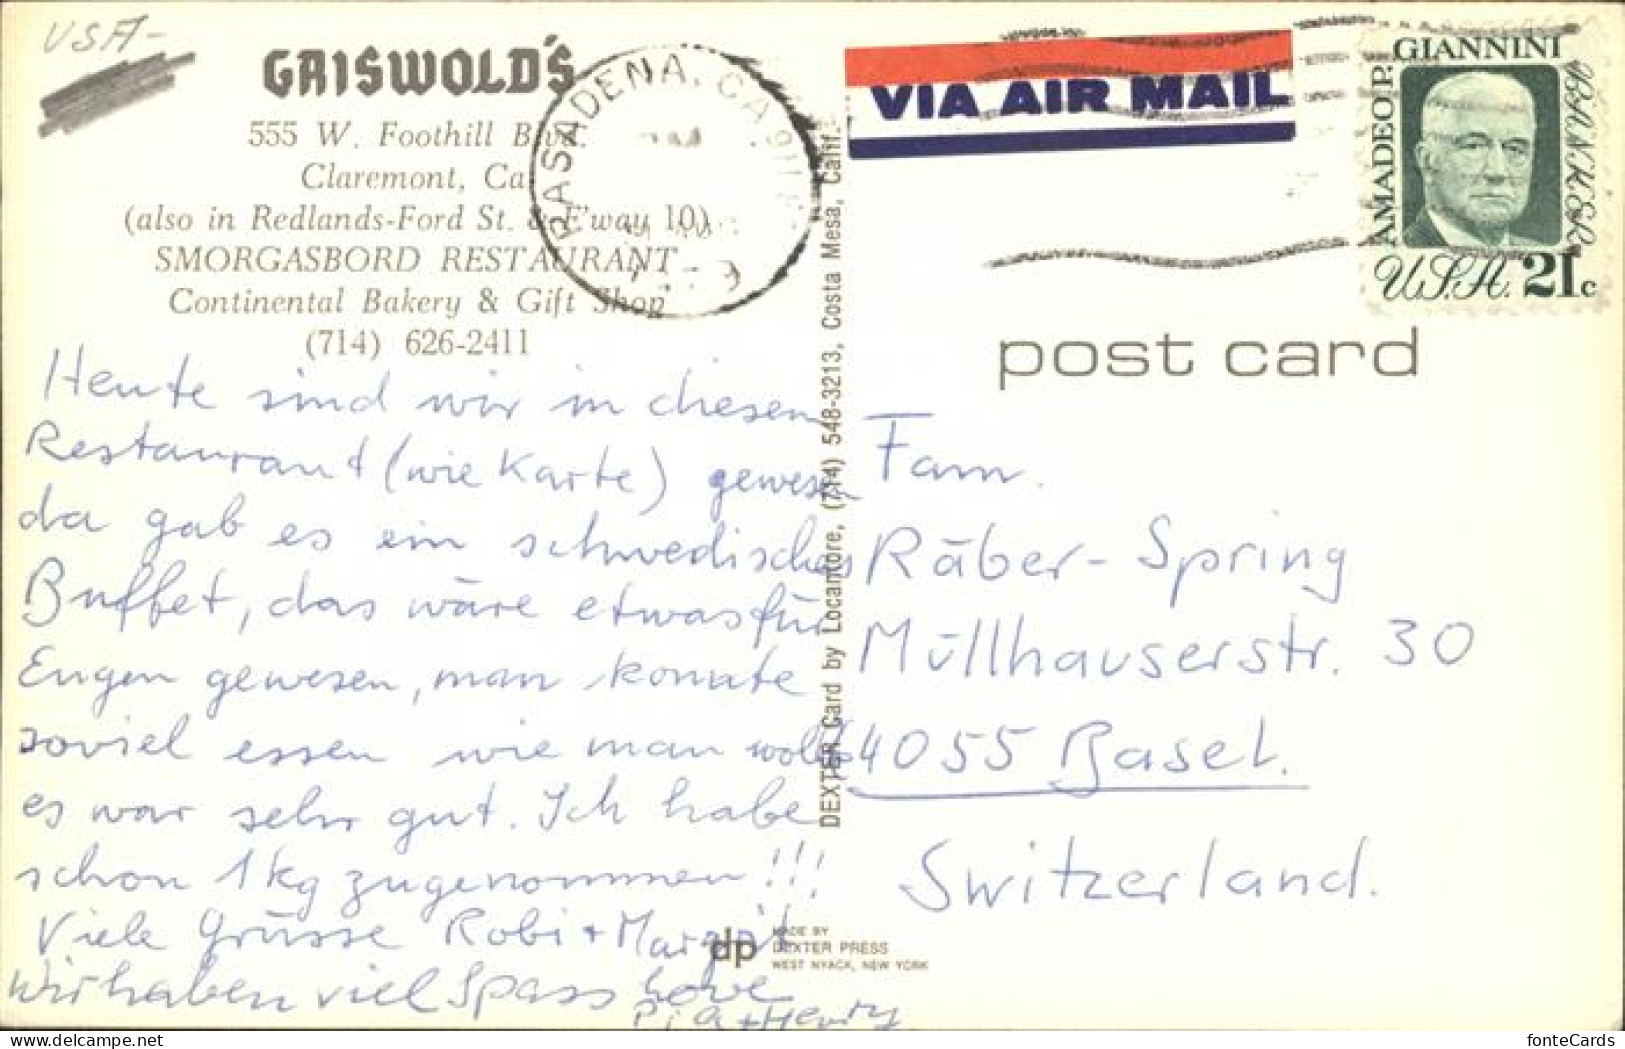 USA-
GRISWOLD'S
555 W. Foothill Blvd.
Claremont, Ca
(also in Redlands-Ford St. & F'way 10)
SMORGASBORD RESTAURANT
Continental Bakery & Gift Shop
(714) 626-2411
PASADENA, CA
PM
VIA AIR MAIL
AMADEO P. GIANNINI BANKER
U.S.A. 21c
post card
Heute sind wir in diesem
Restaurant (wie Karte) gewesen
da gab es ein schwedisches
Buffet, das wäre etwas für
Eugen gewesen, man konnte
soviel essen wie man wollte
es war sehr gut. Ich habe
schon 1kg zugenommen!!!
Viele Grüsse Robi + Margrit
Wir haben viel Spass Love
Pia + Henry
DEXTER Card by Locantore, (714) 548-3213, Costa Mesa, Calif.
Fam.
Räber-Spring
Müllhauserstr. 30
4055 Basel.
Switzerland.
dp
MADE BY
DEXTER PRESS
WEST NYACK, NEW YORK
fonteCards